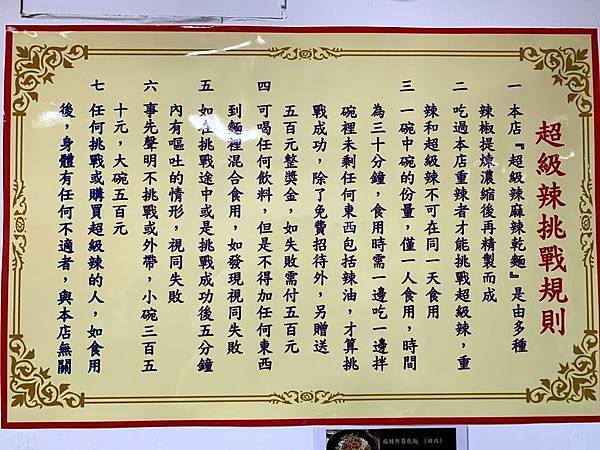 超級辣挑戰規則
一 本店『超級辣麻辣乾麵』是由多種
辣椒提煉濃縮後再精製而成
二 吃過本店重辣者才能挑戰超級辣，重
辣和超級辣不可在同一天食用
三 一碗中碗的份量，僅一人食用，時間
為三十分鐘，食用時需一邊吃一邊拌
碗裡未剩任何東西包括辣油，才算挑
戰成功，除了免費招待外，另贈送
五百元整獎金，如失敗需付五百元
四 可喝任何飲料，但是不得加任何東西
到麵裡混合食用，如發現視同失敗
五 如在挑戰途中或是挑戰成功後五分鐘
內有嘔吐的情形，視同失敗
六 事先聲明不挑戰或外帶，小碗三百五
十元，大碗五百元
七 任何挑戰或購買超級辣的人，如食用
後，身體有任何不適者，與本店無關
麻辣炸醬乾麵